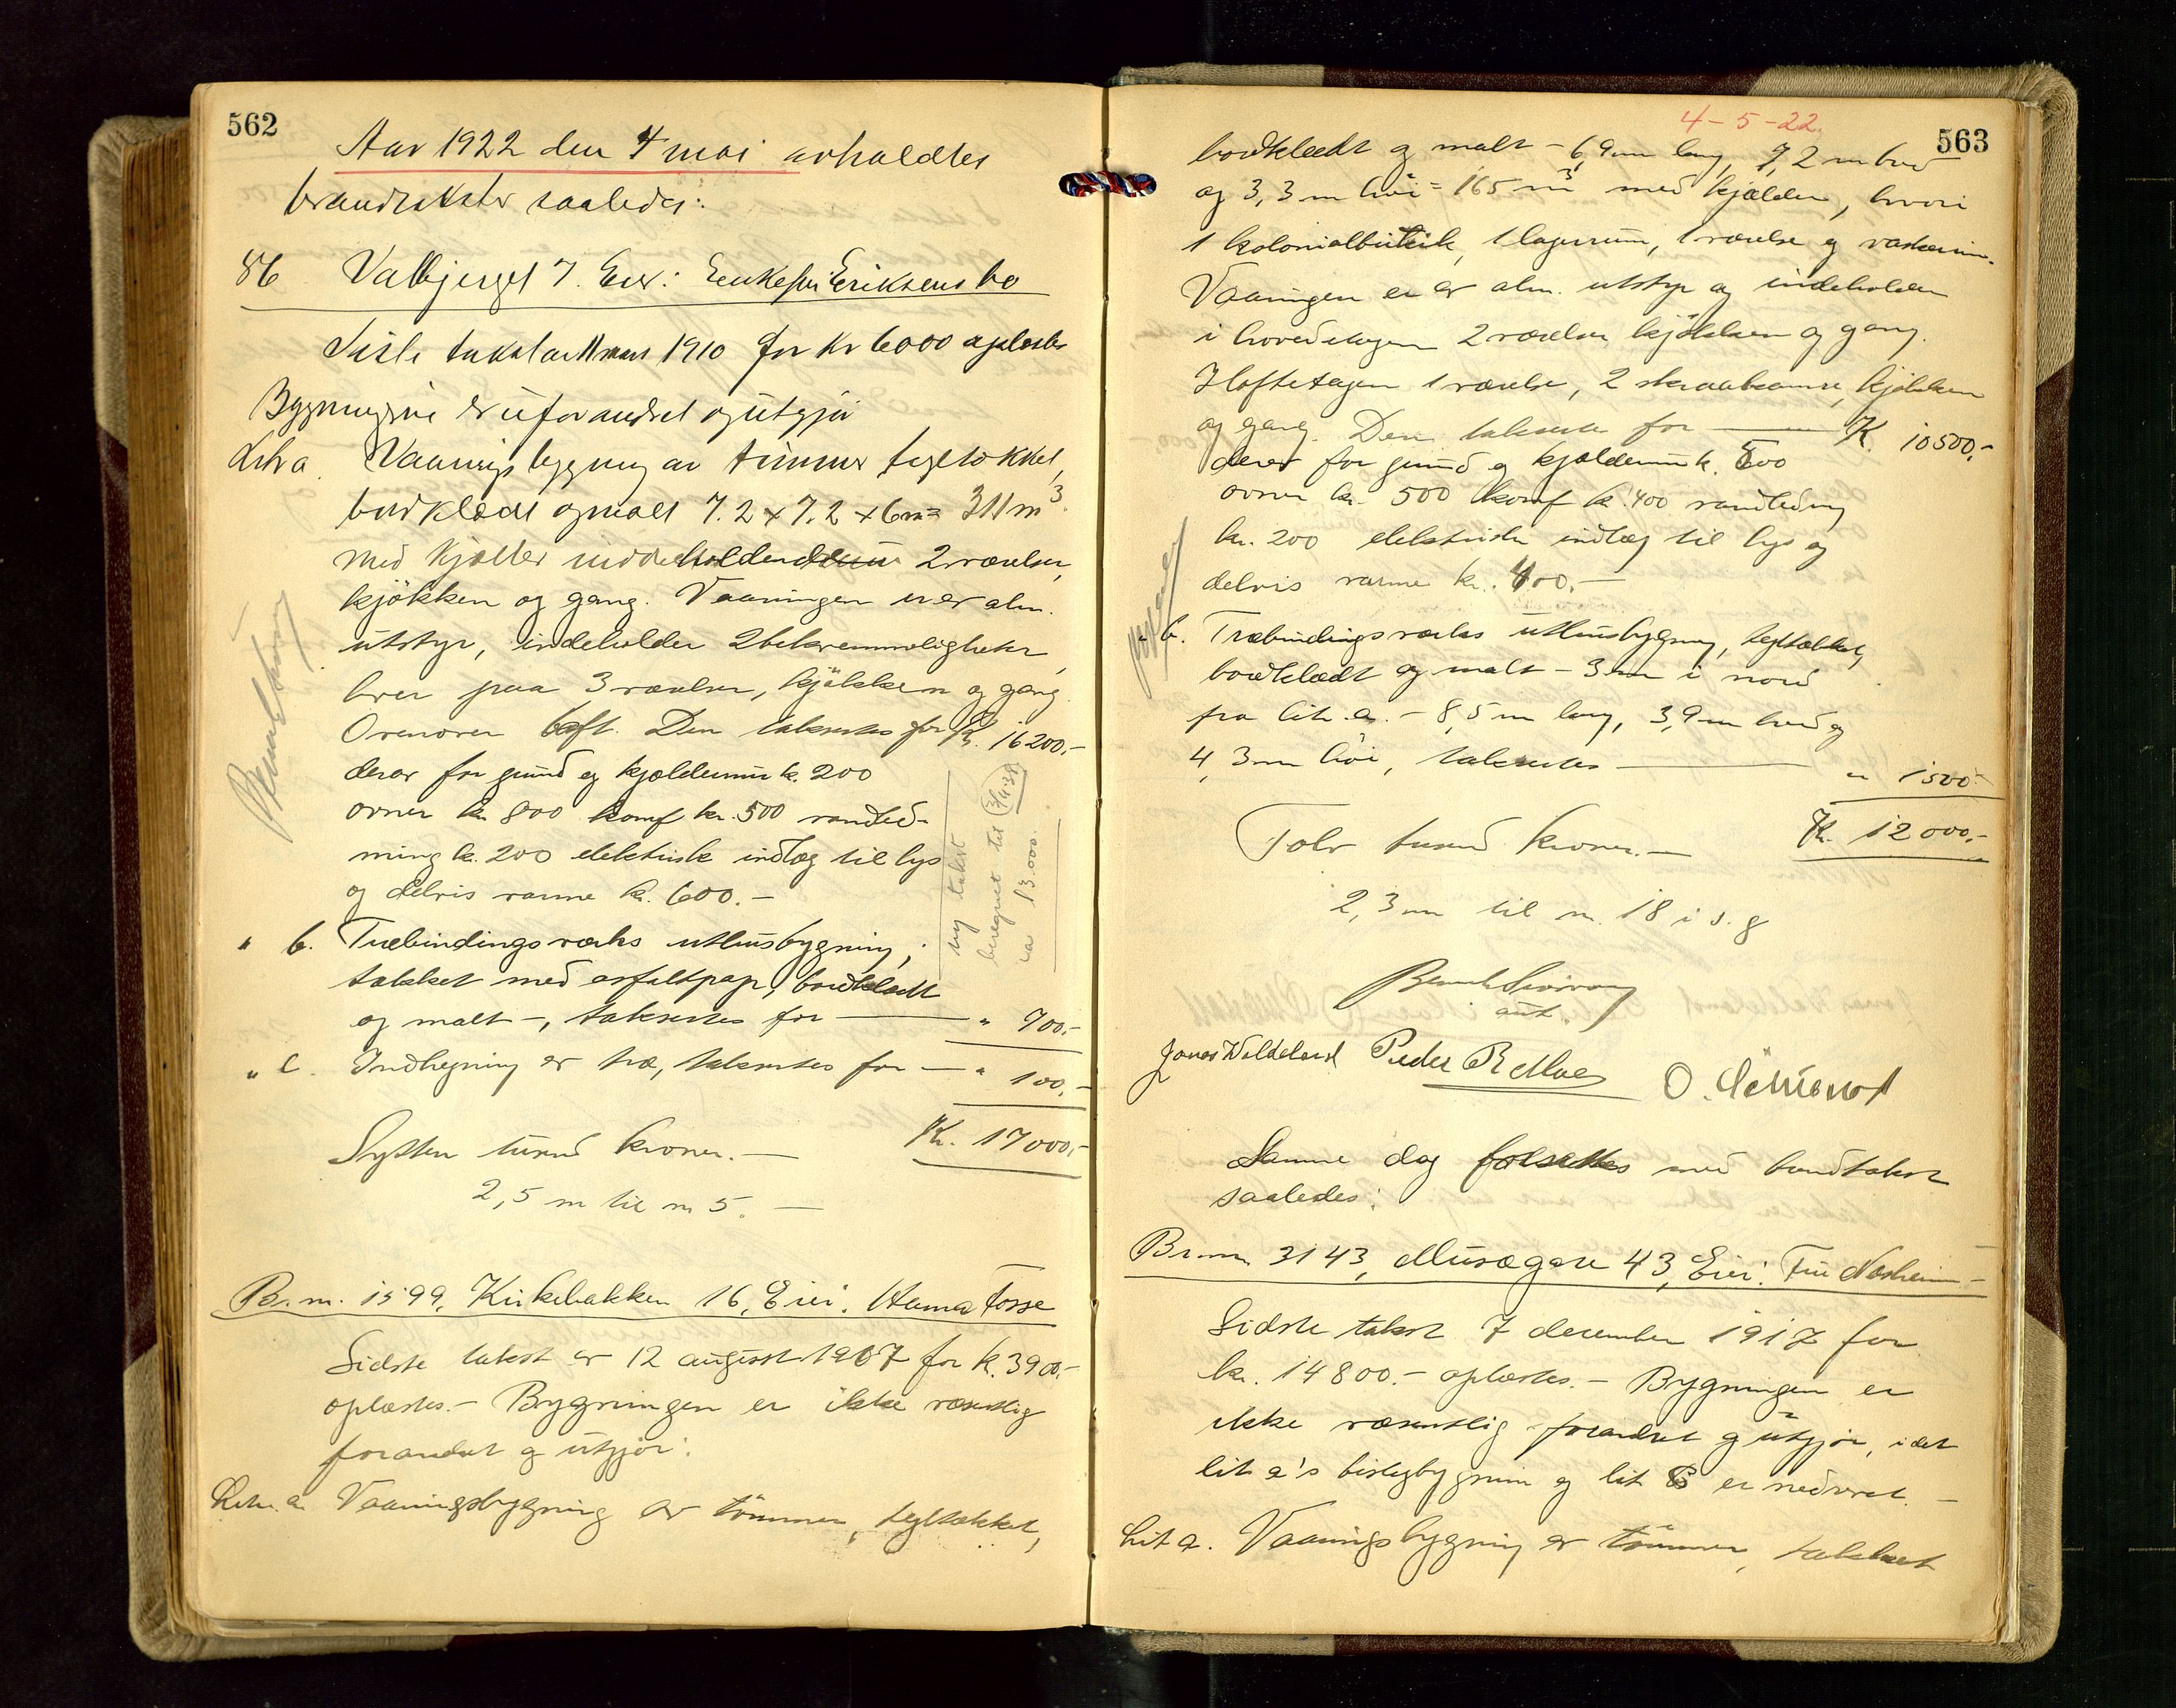 562
Aar 1922 den 4 mai avholdtes
brandtakster saaledes:
86 Valbjerget 7. Eier: Enkefru Eriksens bo
Siste takst av 11 mars 1910 for Kr 6000 oplæstes
Bygningerne er uforandret og utgjør
Litr a Vaaningsbygning av tømmer tegltækket,
bordklædt og malt 7.2 x 7.2 x 6 m = 311 m³.
med kjælder indeholdende 2 værelser,
kjøkken og gang. Vaaningen er av alm.
utstyr, indeholder 2 bekvemmeligheter,
hver paa 3 værelser, kjøkken og gang.
Ovenover loft. Den taksertes for Kr. 16200,-
derav for grund og kjældermur k. 200
ovner kr 800 komf kr. 500 vandled-
ning k. 200 elektrisk indlæg til lys
og delvis varme kr. 600.-
ny takst
beregnet til
ca 13.000.
" b. Træbindingsverks uthusbygning,
tækket med asfaltpap, bordklædt
og malt -, taksertes for — " 700.-
" c. Indhegning av træ, taksertes for — " 100,-
Kr. 17000,-
Sytten tusend kroner.—
2,5 m til nr 5. —
Br.nr. 1599, Kirkebakken 16, Eier: Hanna Fosse
Sidste takst av 12 august 1907 for k. 3900.-
oplæstes.- Bygningen er ikke væsentlig
forandret og utgjør:
Litr. a. Vaaningsbygning av tømmer, tegltækket,
4-5-22.
563
bordklædt og malt - 6,9 m lang, 7,2 m bred
og 3,3 m høi = 165 m³ med kjælder, hvori
1 kolonialbutik, 1 lagerrum, 1 værelse og vaskerum.
Vaaningen er av alm. utstyr og indeholder
i hovedetagen 2 værelser kjøkken og gang.
I loftetagen 1 værelse, 2 skraakamre, kjøkken
og gang. Den taksertes for — K. 10500,-
derav for grund og kjældermur k. 500
ovner kr. 500 komf k. 400 vandledning
kr. 200 elektriske indlæg til lys og
delvis varme kr. 400.-
" b. Træbindingsverks uthusbygning, tegltækket,
bordklædt og malt - 3 m i nord
fra litr. a. - 8,5 m lang, 3,9 m bred og
4,3 m høi, taksertes — " 1500.-
Kr. 12000,-
Tolv tusend kroner.—
2,3 m til nr. 18 i s. g
Jonas Veldeland Peder R Moe
Samme dag fortsattes med brandtakst
saaledes:
Br.nr. 3143, Musægate 43, Eier: Fru Næsheim -
Sidste takst 7 december 1917 for
kr. 14800.- oplæstes.- Bygningen er
ikke væsentlig forandret og utgjør, idet
lit a's bislagbygning og lit B er nedrevet. -
Lit a. Vaaningsbygning av tømmer, tækket